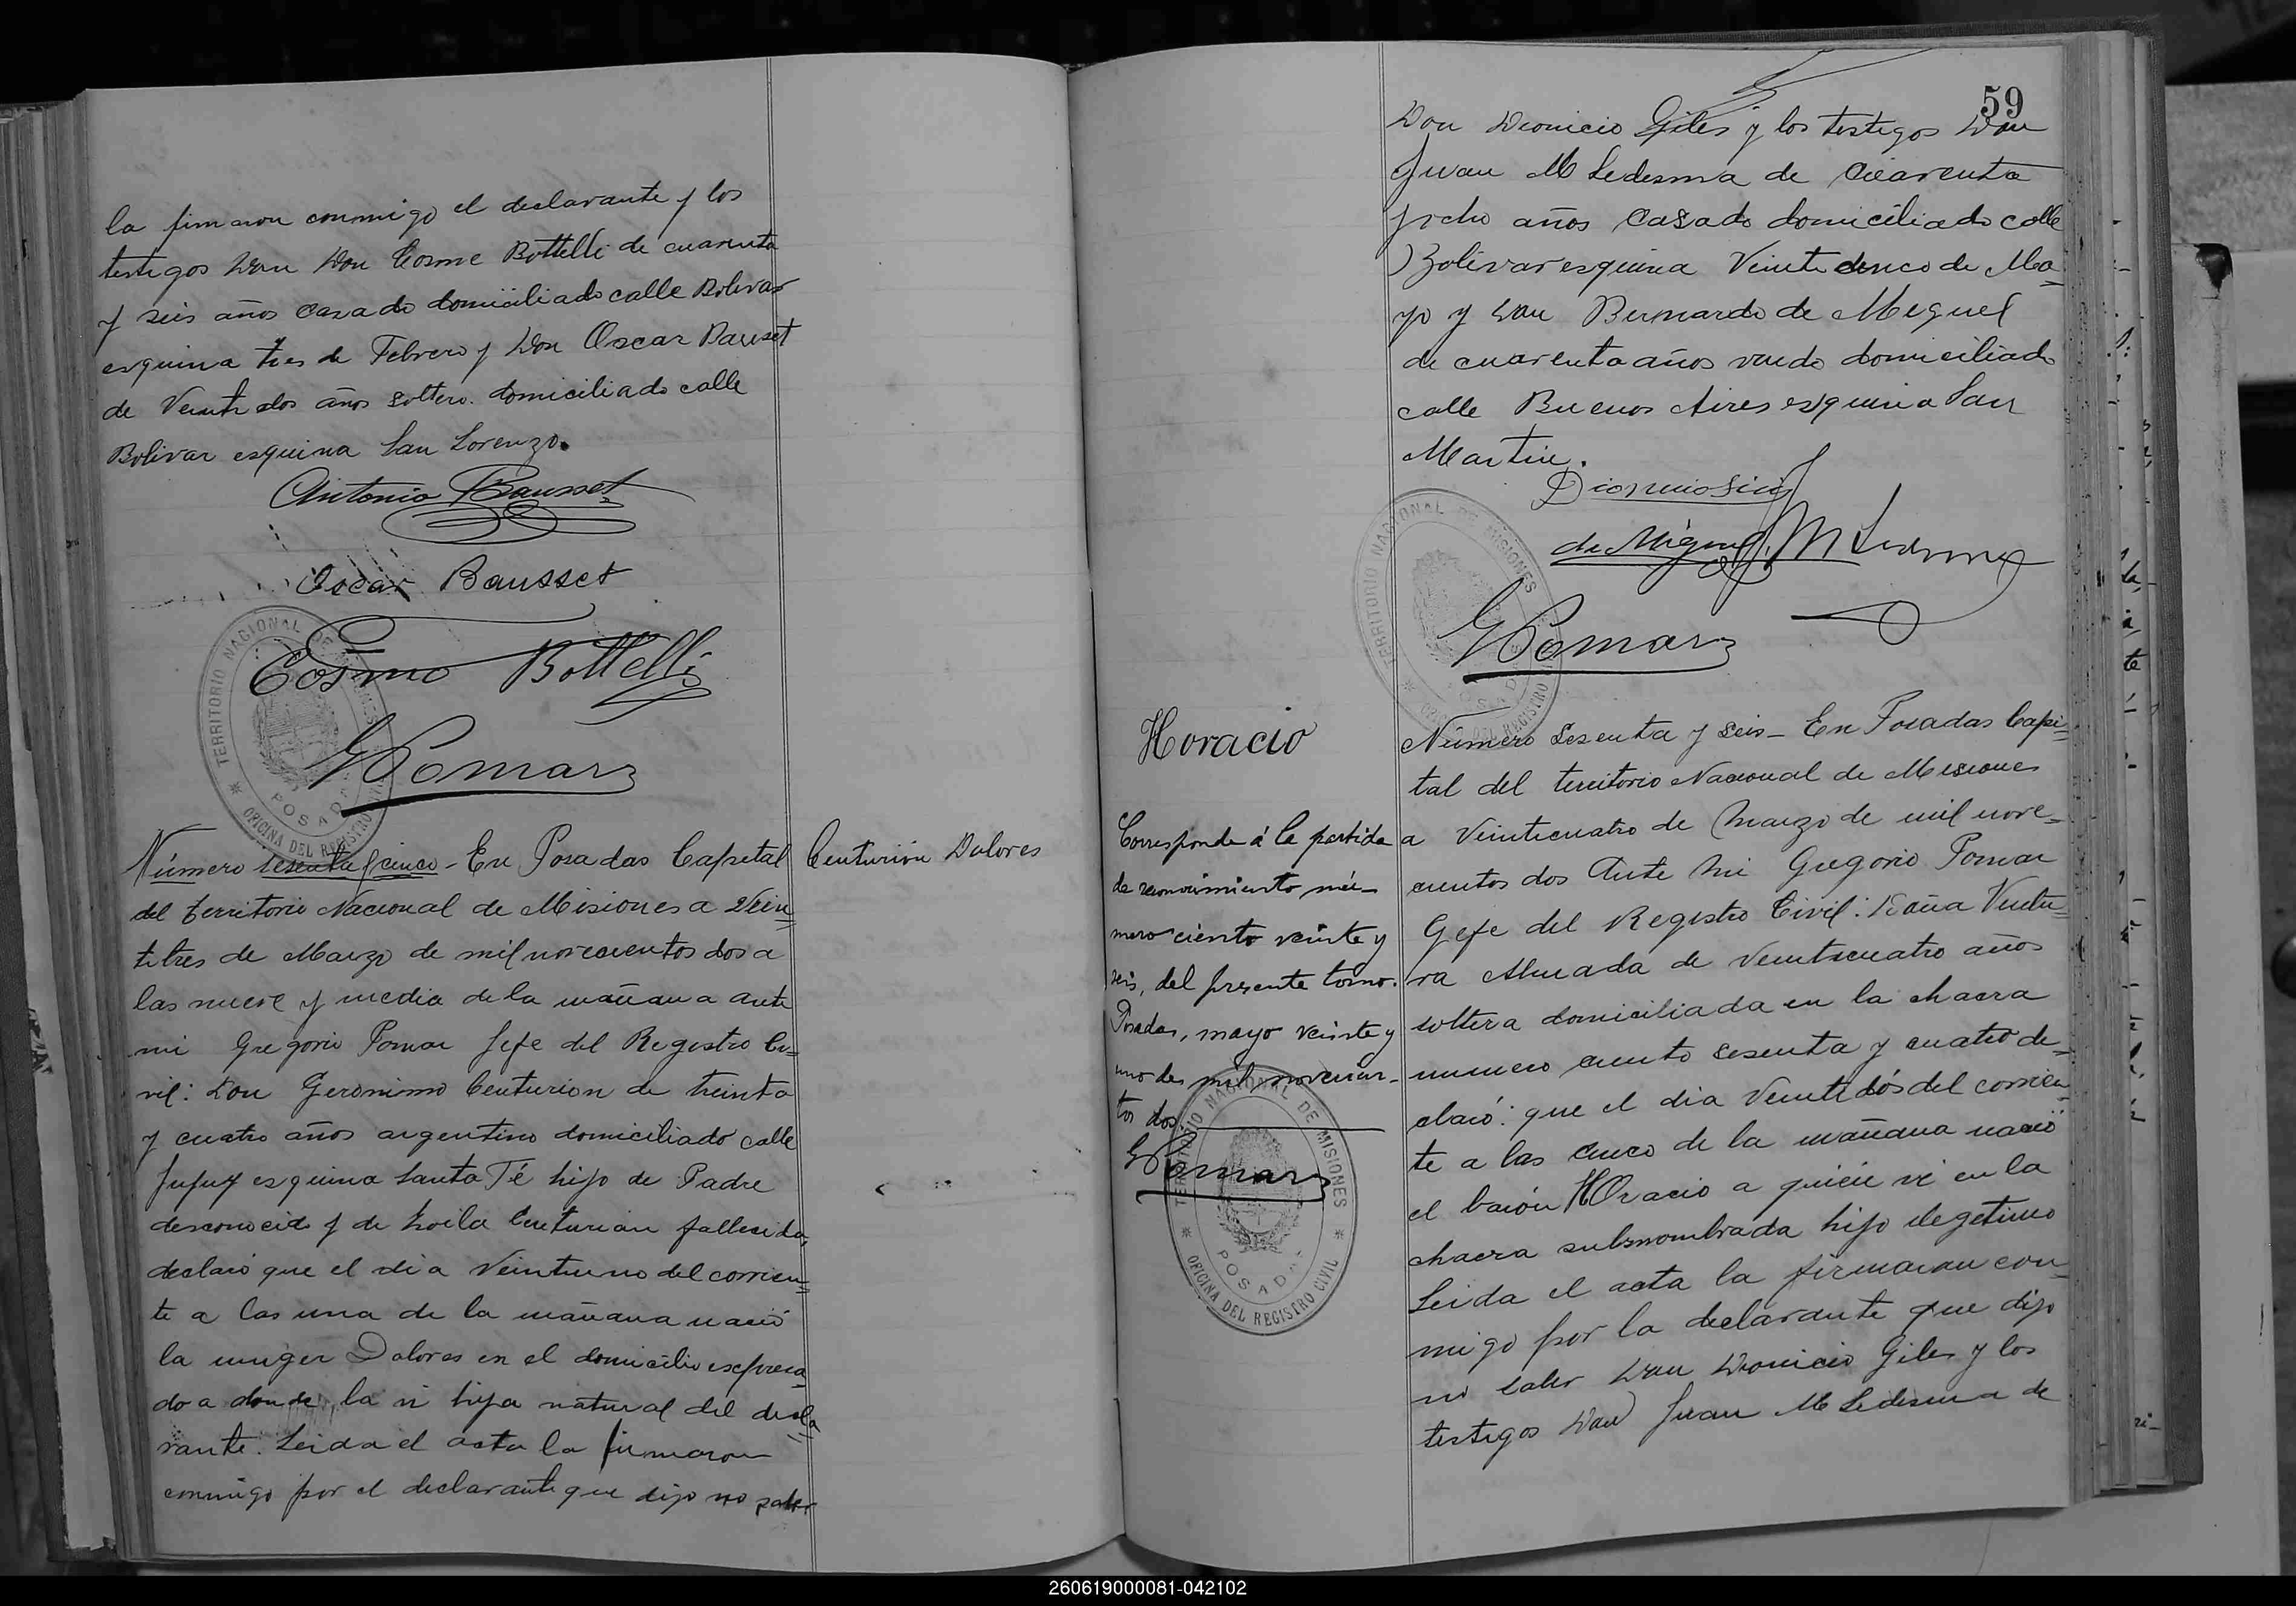 la firmaron conmigo el declarante y los
testigos Don Don Cosme Bottelli de cuarenta
y seis años casado domiciliado calle Bolivar
esquina tres de Febrero y Don Oscar Bauset
de Veinte dos años soltero domiciliado calle
Bolivar esquina San Lorenzo.
Antonio Bausset
Oscar Bausset
Cosmo Bottelli
GPomar
TERRITORIO NACIONAL DE MISIONES
OFICINA DEL REGISTRO CIVIL
POSADAS
Centurión Dolores
Número sesenta y cinco - En Posadas Capital
del territorio Nacional de Misiones a Vein=
titres de Marzo de mil novecientos dos a
las nueve y media de la mañana ante
mi Gregorio Pomar Jefe del Registro Ci=
vil: Don Geronimo Centurion de treinta
y cuatro años argentino domiciliado calle
Jujuy esquina Santa Fé hijo de Padre
desconocido y de Zoila Centurion fallecida,
declaró que el dia Veintiuno del corrien=
te a las una de la mañana nació
la muger Dolores en el domicilio expresa=
do a donde la vi hija natural del decla=
rante. Leida el acta la firmaron
conmigo por el declarante que dijo no saber
59
Don Dionicio Giles y los testigos Don
Juan M Ledesma de Cuarenta
y ocho años casado domiciliado calle
Bolivar esquina Veinte cinco de Ma=
yo y Don Bernardo de Meguel
de cuarenta años viudo domiciliado
calle Buenos Aires esquina San
Martin.
de Miguel M Ledesma
GPomar
TERRITORIO NACIONAL DE MISIONES
OFICINA DEL REGISTRO CIVIL
POSADAS
Horacio
Corresponde á la partida
de reconocimiento nú-
mero ciento veinte y
seis, del presente tomo.
Posadas, mayo veinte y
uno de mil novecien-
tos dos
GPomar
TERRITORIO NACIONAL DE MISIONES
OFICINA DEL REGISTRO CIVIL
POSADAS
Número Sesenta y seis - En Posadas Capi=
tal del territorio Nacional de Misiones
a Veinticuatro de Marzo de mil nove=
cientos dos Ante mi Gregorio Pomar
Gefe del Registro Civil: Doña Ventu=
ra Almada de Veinticuatro años
soltera domiciliada en la chacra
numero ciento sesenta y cuatro de=
claró: que el dia Veintidós del corrien=
te a las cinco de la mañana nació
el barón Horacio a quien vi en la
chacra subsnombrada hijo ilegetimo
Leida el acta la firmaron con=
migo por la declarante que dijo
no saber Don Dionicio Giles y los
testigos Don Juan M Ledesma de